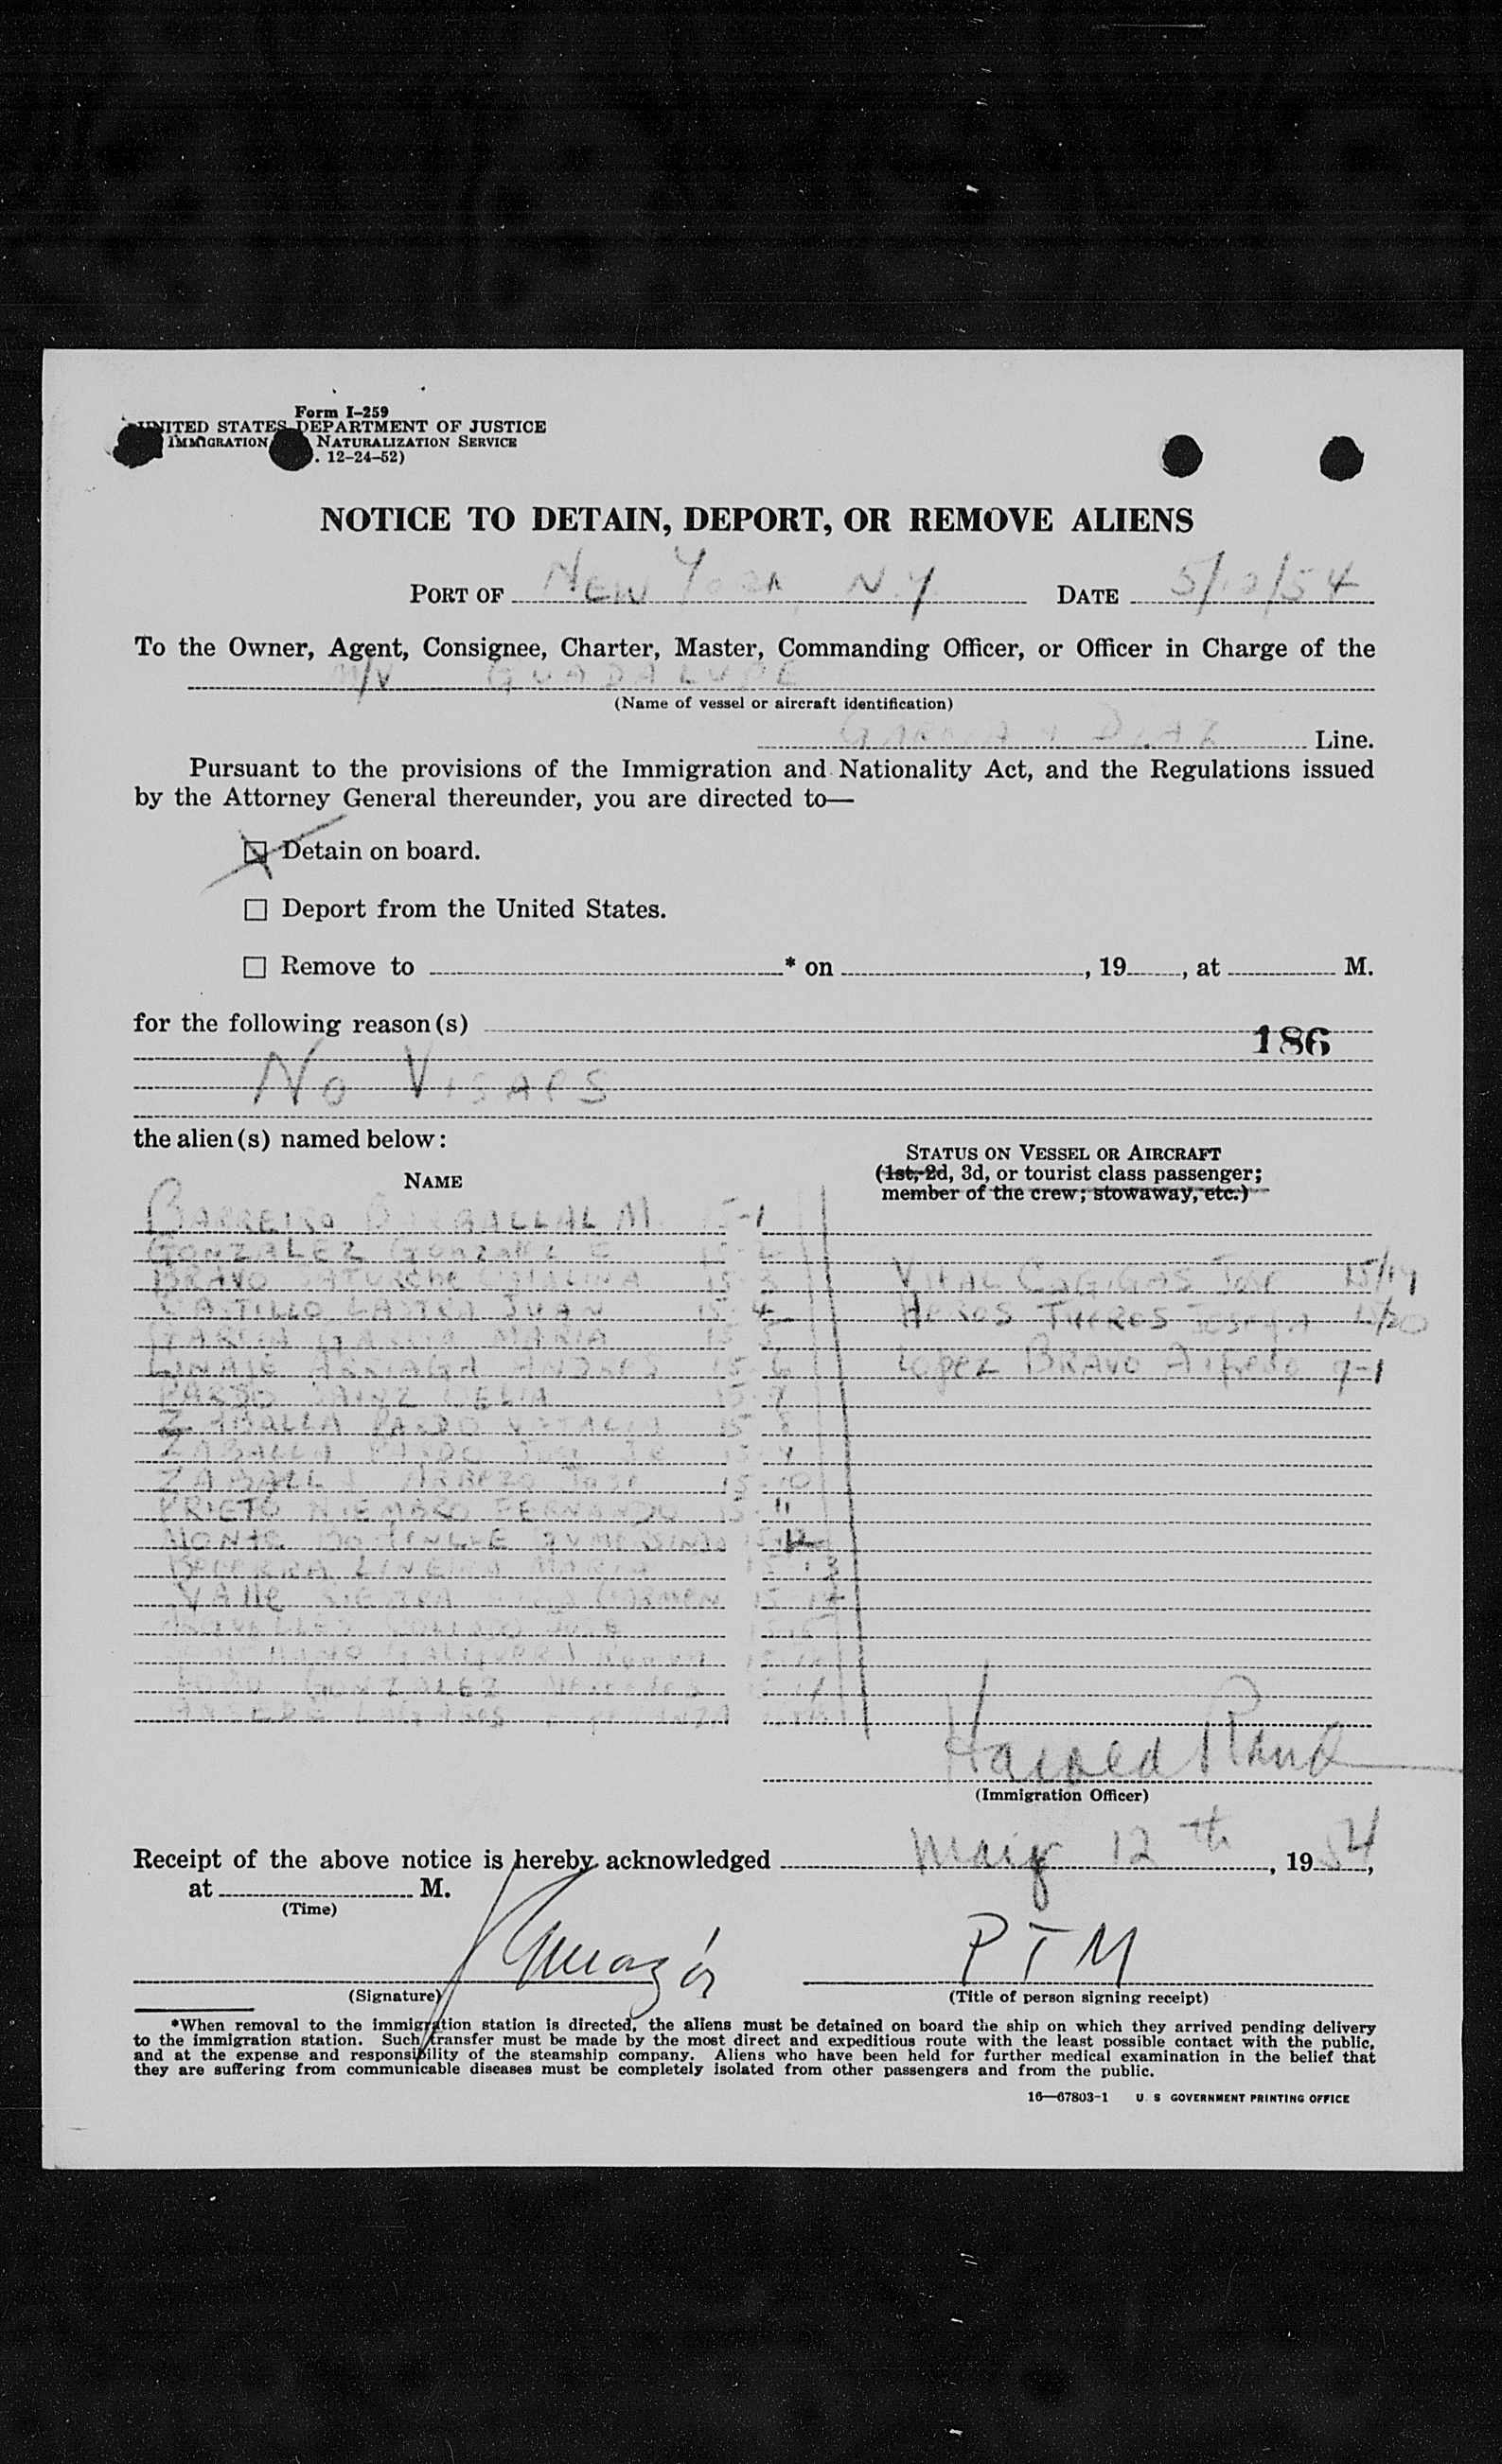 Form I-259
UNITED STATES DEPARTMENT OF JUSTICE
IMMIGRATION NATURALIZATION SERVICE
. 12-24-52)
NOTICE TO DETAIN, DEPORT, OR REMOVE ALIENS
PORT OF NEW YORK, N.Y. DATE 5/12/54
To the Owner, Agent, Consignee, Charter, Master, Commanding Officer, or Officer in Charge of the
M/V GUADALUPE
(Name of vessel or aircraft identification)
GARCIA & DIAZ Line.
Pursuant to the provisions of the Immigration and Nationality Act, and the Regulations issued
by the Attorney General thereunder, you are directed to—
Detain on board.
Deport from the United States.
Remove to * on , 19 , at M.
for the following reason(s)
186
NO VISAES
the alien(s) named below:
STATUS ON VESSEL OR AIRCRAFT
NAME
(1st, 2d, 3d, or tourist class passenger;
member of the crew; stowaway, etc.)
BARREIRO M. 15-1
GONZALEZ GONZALEZ E
BRAVO CATALINA 15-3
VIDAL COGIGAS JOSE 15/19
CASTILLO LASTRA JUAN 15-4
HEROS JOSEFA 15/20
GARCIA GARCIA MARIA 15-5
LINAJE ARRIAGA ANDRES 15-6
LOPEZ BRAVO Alfredo 9-1
PARDO SAINZ DELIA 15-7
ZABALLA PARDO 15-8
ZABALLA PARDO JOSE JR
ZABALLA JOSE 15-10
PRIETO FERNANDO 15-11
MONTE 15-12
LINEIRA MARIA 15-13
VALLE SIERRA CARMEN 15-14
15-15
GONZALEZ
Harold
(Immigration Officer)
Receipt of the above notice is hereby acknowledged May 12th, 1954,
at M.
(Time)
PTM
(Signature)
(Title of person signing receipt)
*When removal to the immigration station is directed, the aliens must be detained on board the ship on which they arrived pending delivery
to the immigration station. Such transfer must be made by the most direct and expeditious route with the least possible contact with the public,
and at the expense and responsibility of the steamship company. Aliens who have been held for further medical examination in the belief that
they are suffering from communicable diseases must be completely isolated from other passengers and from the public.
16—67803-1 U. S GOVERNMENT PRINTING OFFICE